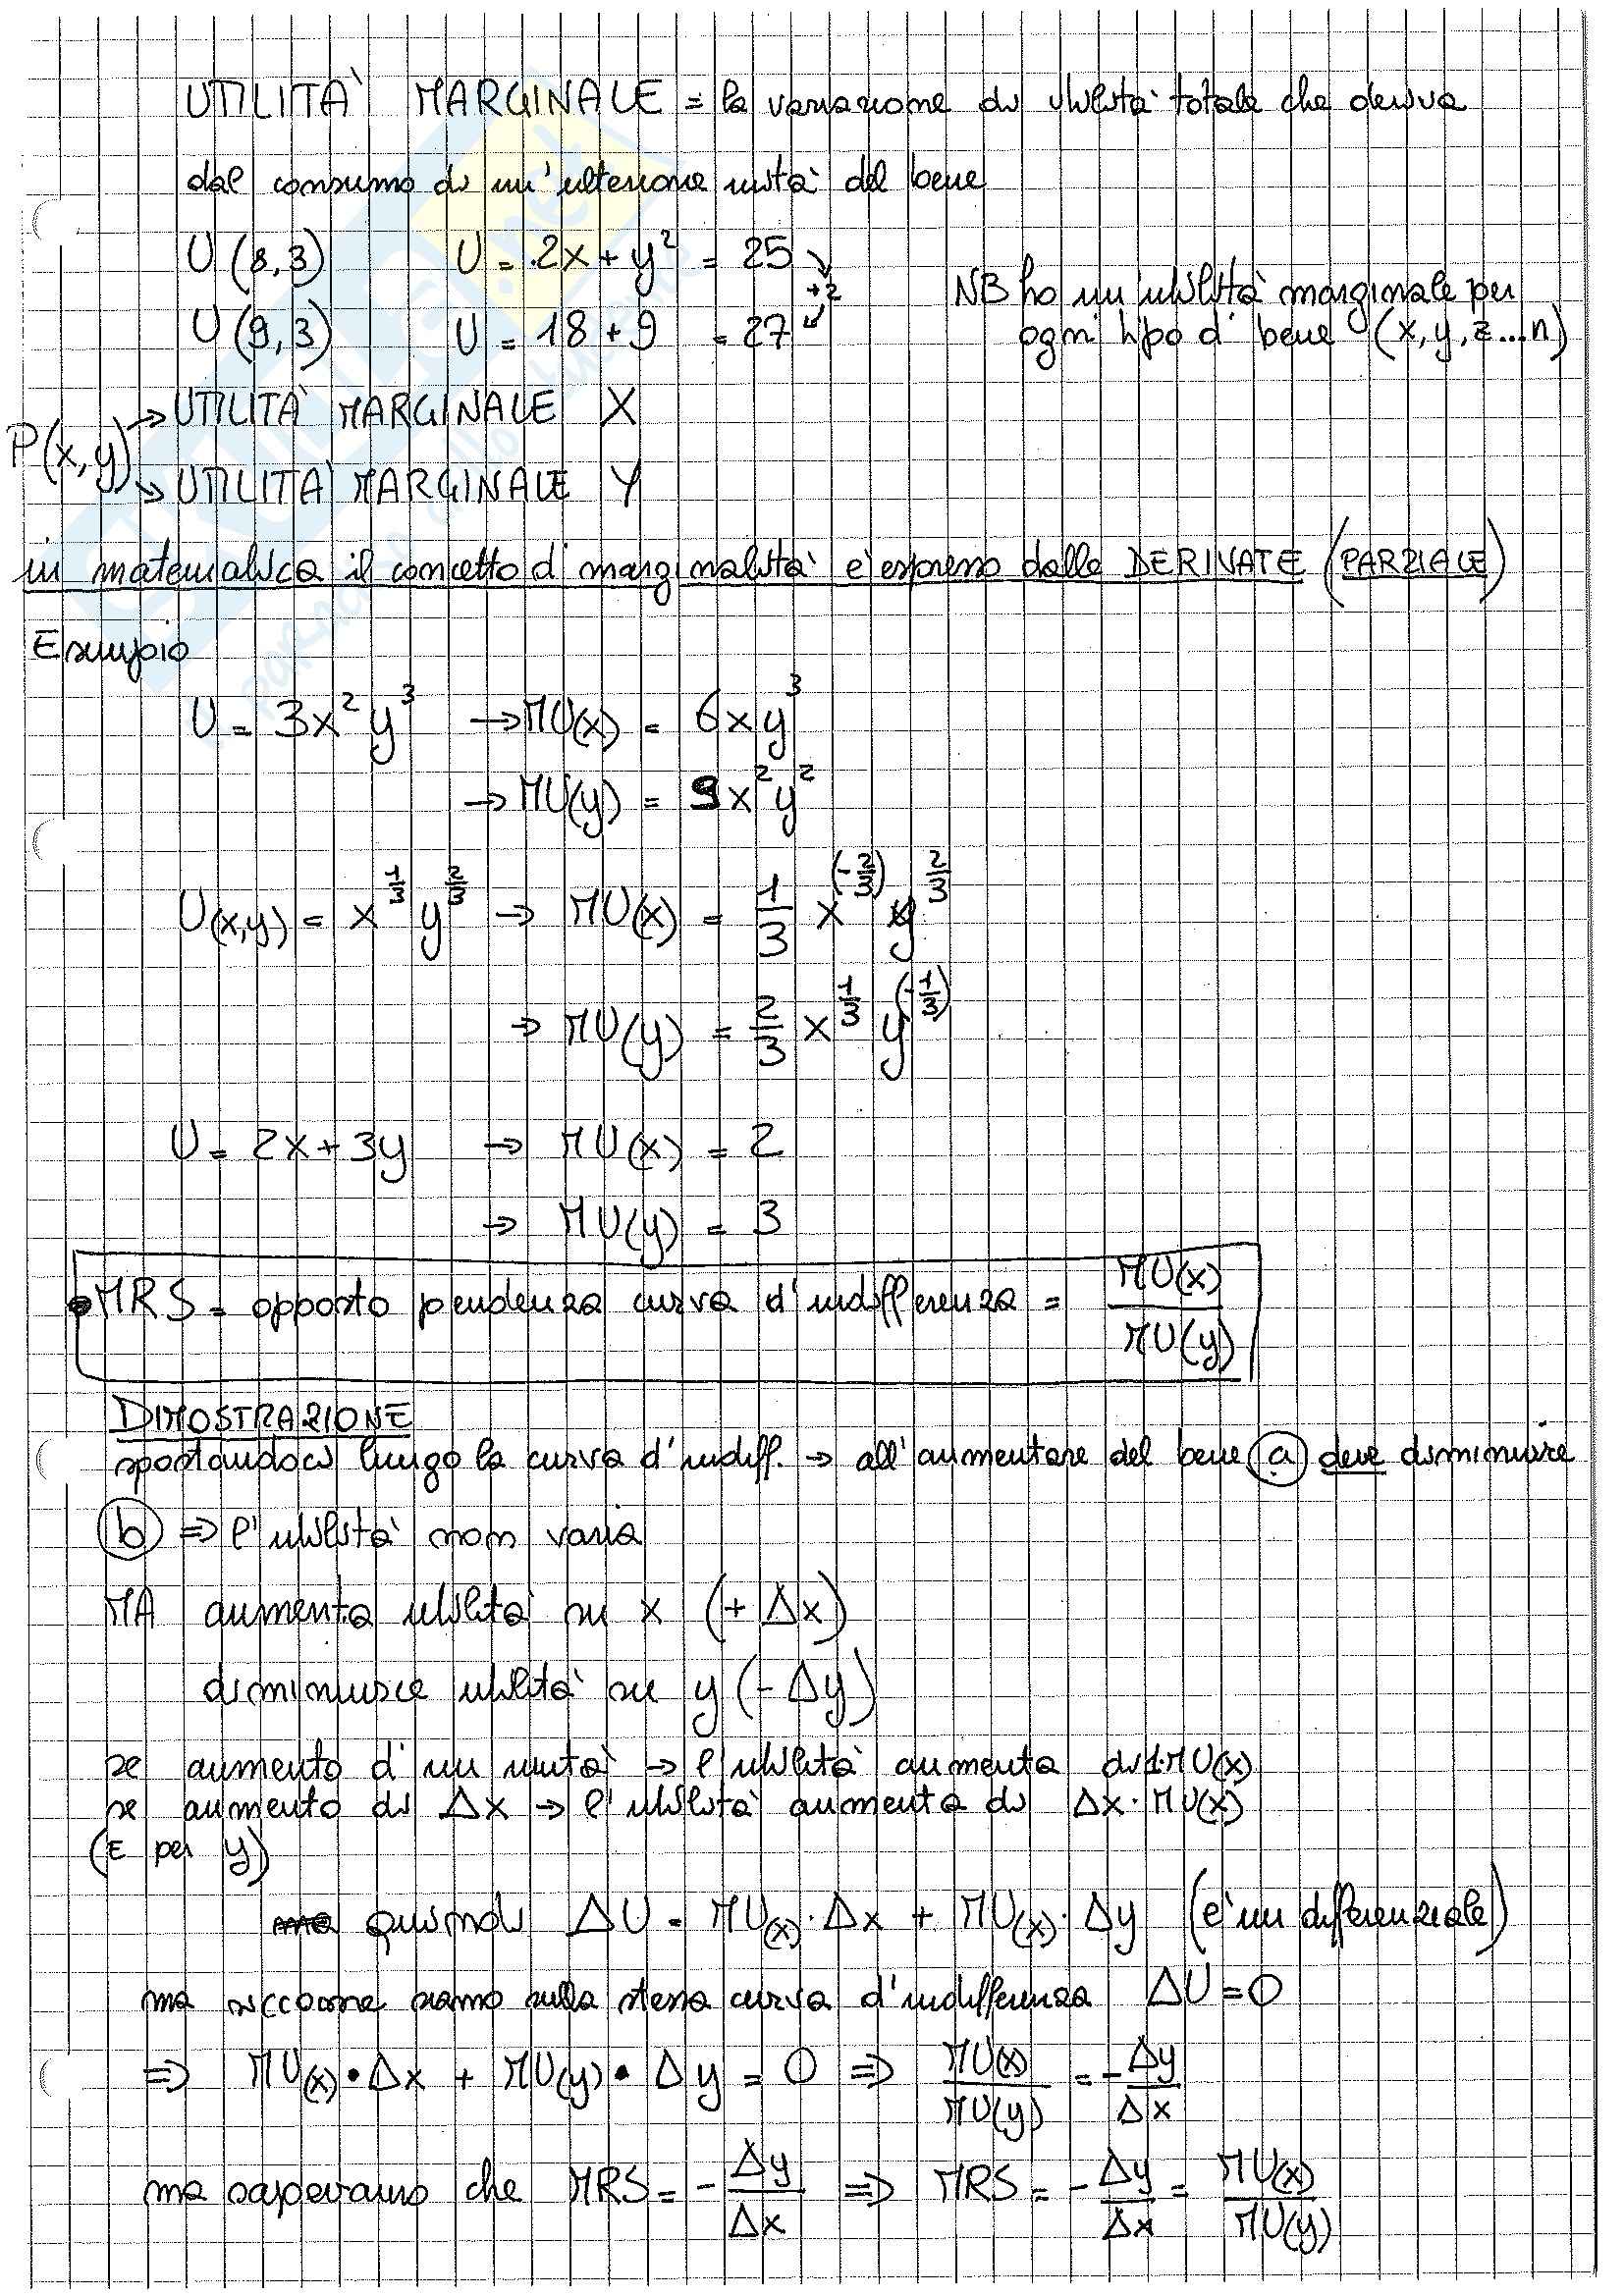 UTILITA' MARGINALE = la variazione di utilità totale che deriva
dal consumo di un'ulteriore unità del bene
U (8,3) U = 2x + y² = 25
+2
U (9,3) U = 18 + 9 = 27
NB ho un'utilità marginale per
ogni tipo di bene (x, y, z ... n)
P(x,y) → UTILITA' MARGINALE X
→ UTILITA' MARGINALE Y
in matematica il concetto di marginalità è espresso dalle DERIVATE (PARZIALE)
Esempio
U = 3x² y³ → MU(x) = 6xy³
→ MU(y) = 9x² y²
U(x,y) = x^(1/3) y^(2/3) → MU(x) = 1/3 x^(-2/3) y^(2/3)
→ MU(y) = 2/3 x^(1/3) y^(-1/3)
U = 2x + 3y → MU(x) = 2
→ MU(y) = 3
• MRS = opposto pendenza curva d'indifferenza = MU(x)/MU(y)
DIMOSTRAZIONE
spostandoci lungo la curva d'indiff. → all'aumentare del bene (a) deve diminuire
(b) ⇒ l'utilità non varia
MA aumenta utilità su x (+ Δx)
diminuisce utilità su y (- Δy)
se aumento di un unità → l'utilità aumenta di 1·MU(x)
se aumento di Δx → l'utilità aumenta di Δx · MU(x)
(E per y)
ma quindi ΔU = MU(x) · Δx + MU(x) · Δy (è un differenziale)
ma siccome siamo sulla stessa curva d'indifferenza ΔU = 0
⇒ MU(x) • Δx + MU(y) • Δy = 0 ⇒ MU(x)/MU(y) = - Δy/Δx
ma sapevamo che MRS = - Δy/Δx ⇒ MRS = - Δy/Δx = MU(x)/MU(y)